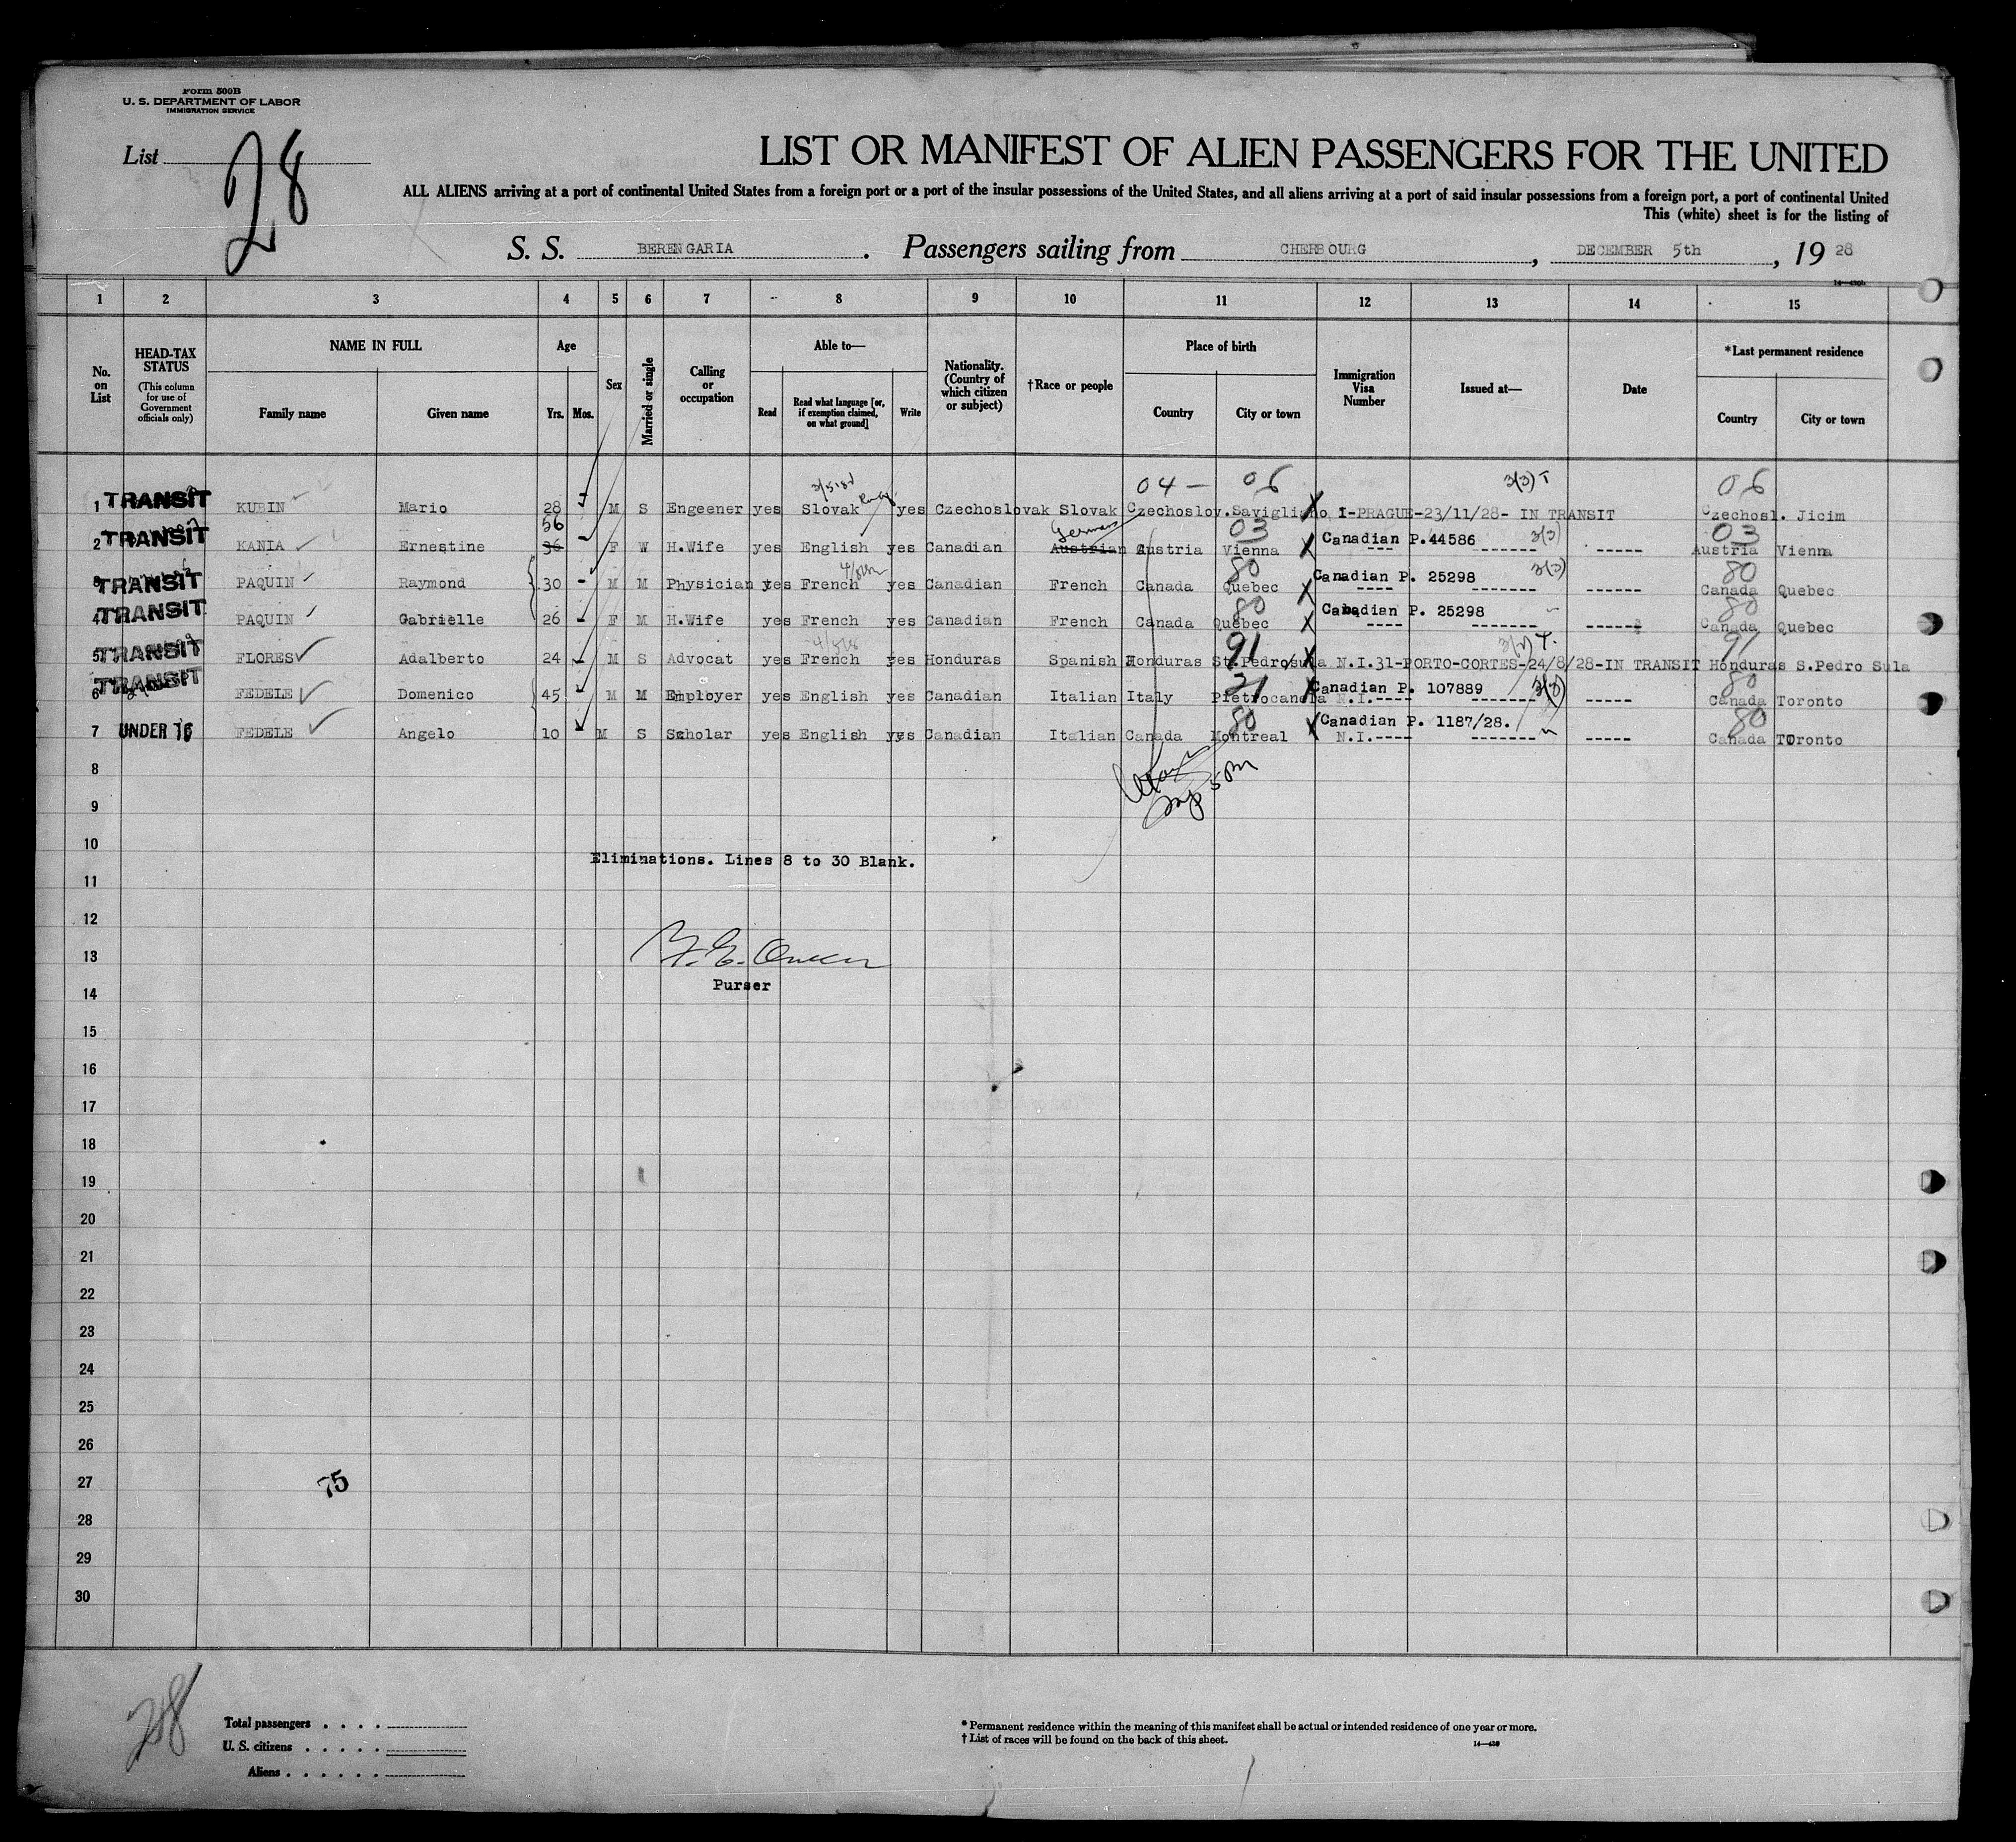 Form 500B
U. S. DEPARTMENT OF LABOR
IMMIGRATION SERVICE
List 28
LIST OR MANIFEST OF ALIEN PASSENGERS FOR THE UNITED
ALL ALIENS arriving at a port of continental United States from a foreign port or a port of the insular possessions of the United States, and all aliens arriving at a port of said insular possessions from a foreign port, a port of continental United
This (white) sheet is for the listing of
S. S. BERENGARIA. Passengers sailing from CHERBOURG, DECEMBER 5th, 19 28
14—430b
1 2 3 4 5 6 7 8 9 10 11 12 13 14 15
No. on List
HEAD-TAX STATUS (This column for use of Government officials only)
NAME IN FULL Family name Given name
Age Yrs. Mos.
Sex
Married or single
Calling or occupation
Able to— Read Read what language [or, if exemption claimed, on what ground] Write
Nationality. (Country of which citizen or subject)
†Race or people
Place of birth Country City or town
Immigration Visa Number
Issued at—
Date
*Last permanent residence Country City or town
04 — 06 3(3) T 06
1 TRANSIT KUBIN Mario 28 M S Engeener yes Slovak yes Czechoslovak Slovak Czechoslov. Savigliano I-PRAGUE-23/11/28- IN TRANSIT Czechosl. Jicim
56 German 03 3(3) 03
2 TRANSIT KANIA Ernestine 36 F W H.Wife yes English yes Canadian Austrian Austria Vienna Canadian P.44586 --- ------- ----- Austria Vienna
80 3(3) 80
3 TRANSIT PAQUIN Raymond 30 - M M Physician yes French yes Canadian French Canada Quebec Canadian P. 25298 ---- ------- ------ Canada Quebec
80 80
4 TRANSIT PAQUIN Gabrielle 26 F M H.Wife yes French yes Canadian French Canada Quebec Canadian P. 25298 ---- ------- ------ Canada Quebec
91 3(2) T. 91
5 TRANSIT FLORES Adalberto 24 M S Advocat yes French yes Honduras Spanish Honduras St.Pedrosula N.I.31-PORTO-CORTES-24/8/28-IN TRANSIT Honduras S.Pedro Sula
21 3(3) 80
6 TRANSIT FEDELE Domenico 45 M M Employer yes English yes Canadian Italian Italy Pietrocandela Canadian P. 107889 N.I.---- ------- ----- Canada Toronto
80 80
7 UNDER 16 FEDELE Angelo 10 M S Scholar yes English yes Canadian Italian Canada Montreal Canadian P. 1187/28. N.I.---- ------- ----- Canada Toronto
8
9
10
Eliminations. Lines 8 to 30 Blank.
11
12
13
Purser
14
15
16
17
18
19
20
21
22
23
24
25
26
27
75
28
29
30
28
Total passengers . . . .
U. S. citizens . . . . .
Aliens . . . . . .
* Permanent residence within the meaning of this manifest shall be actual or intended residence of one year or more.
† List of races will be found on the back of this sheet.
14—430